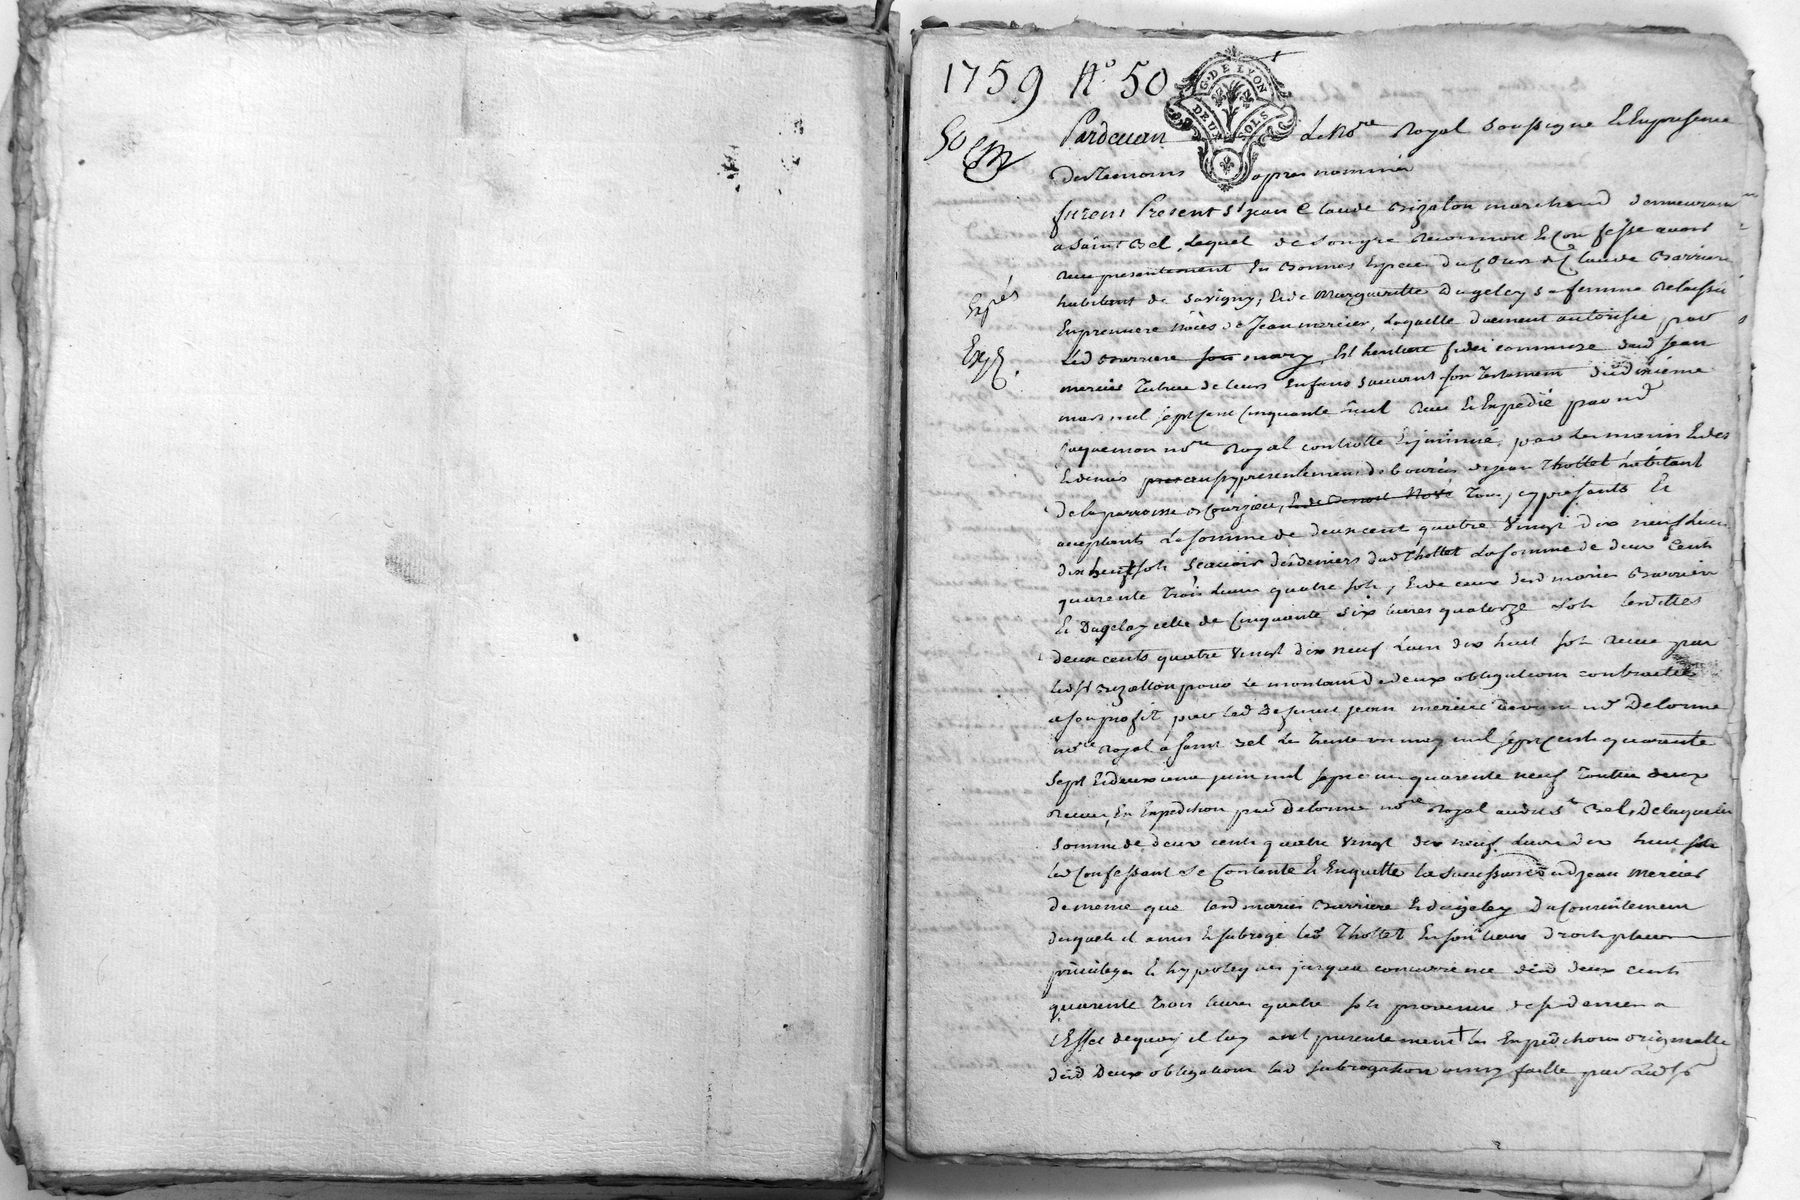 1759 N° 50
G. DE LYON
DEUX SOLS
50
Pardevan Le No.re Royal soussigne Et En presence
des Temoins apres nommés
furent Present Sr jean Claude Bizalon marchand demeurant
a Saint Bel, Lequel de son gre reconnoit Et Confesse avoir
reçu presentement En Bonnes Especes du Cours de Claude Barriere
habitant de Savigny, Et de Margueritte Dugelay sa femme relaissée
En premiere nôces de Jean mercier, Laquelle duement autorisée par
Led Barriere son mary, Est heritiere fidei commise dud Jean
mercier Tutrice de leurs Enfans suivant son Testament du dixieme
mars mil sept cent cinquante huit reçu Et Expedié par md
no.re Royal controllé Et insinué, par Les mains Et des
deniers presentement deboursés de jean Thollet habitant
Expés
Exp.
de la parroisse de Courzieu, Tous cy presents Et
acceptants La somme de deux cent quatre Vingt dix neuf Livres
dix huit sols Scavoir des deniers dud Thollet La somme de deux Cents
quarente Trois Livres quatre sols, Et de ceux desd mariés Barriere
Et Dugelay celle de Cinquante six livres quatorze sols lesdittes
deux cents quatre Vingt dix neuf Livres dix huit sols reçue par
led Sr Bizallon pour Le montant de deux obligations contractées
a son profit par led Defunt jean mercier devant md Delorme
no.re Royal a saint Bel Le Trente un may mil sept cents quarente
Sept Et deuxieme juin mil sept cent quarente neuf Toutes deux
En Expedition par Delorme no.re Royal audit St Bel, De laquelle
Somme de deux cents quatre Vingt dix neuf Livres dix huit sols
led Confessant Se Contente Et En quitte la succession dud jean Mercier
de meme que lesd mariés Barriere Et dugelay Du Consentement
desquels il a mis Et subrogé led Thollet En son lieu droits place
privileges Et hypoteques jusques concurrence desd deux cents
quarente Trois livres quatre sols provenue de ses deniers a
l'Effet de quoy il luy a remis presentement + les Expeditions originalles
desd Deux obligations lad subrogation ainsy faitte par led Sr